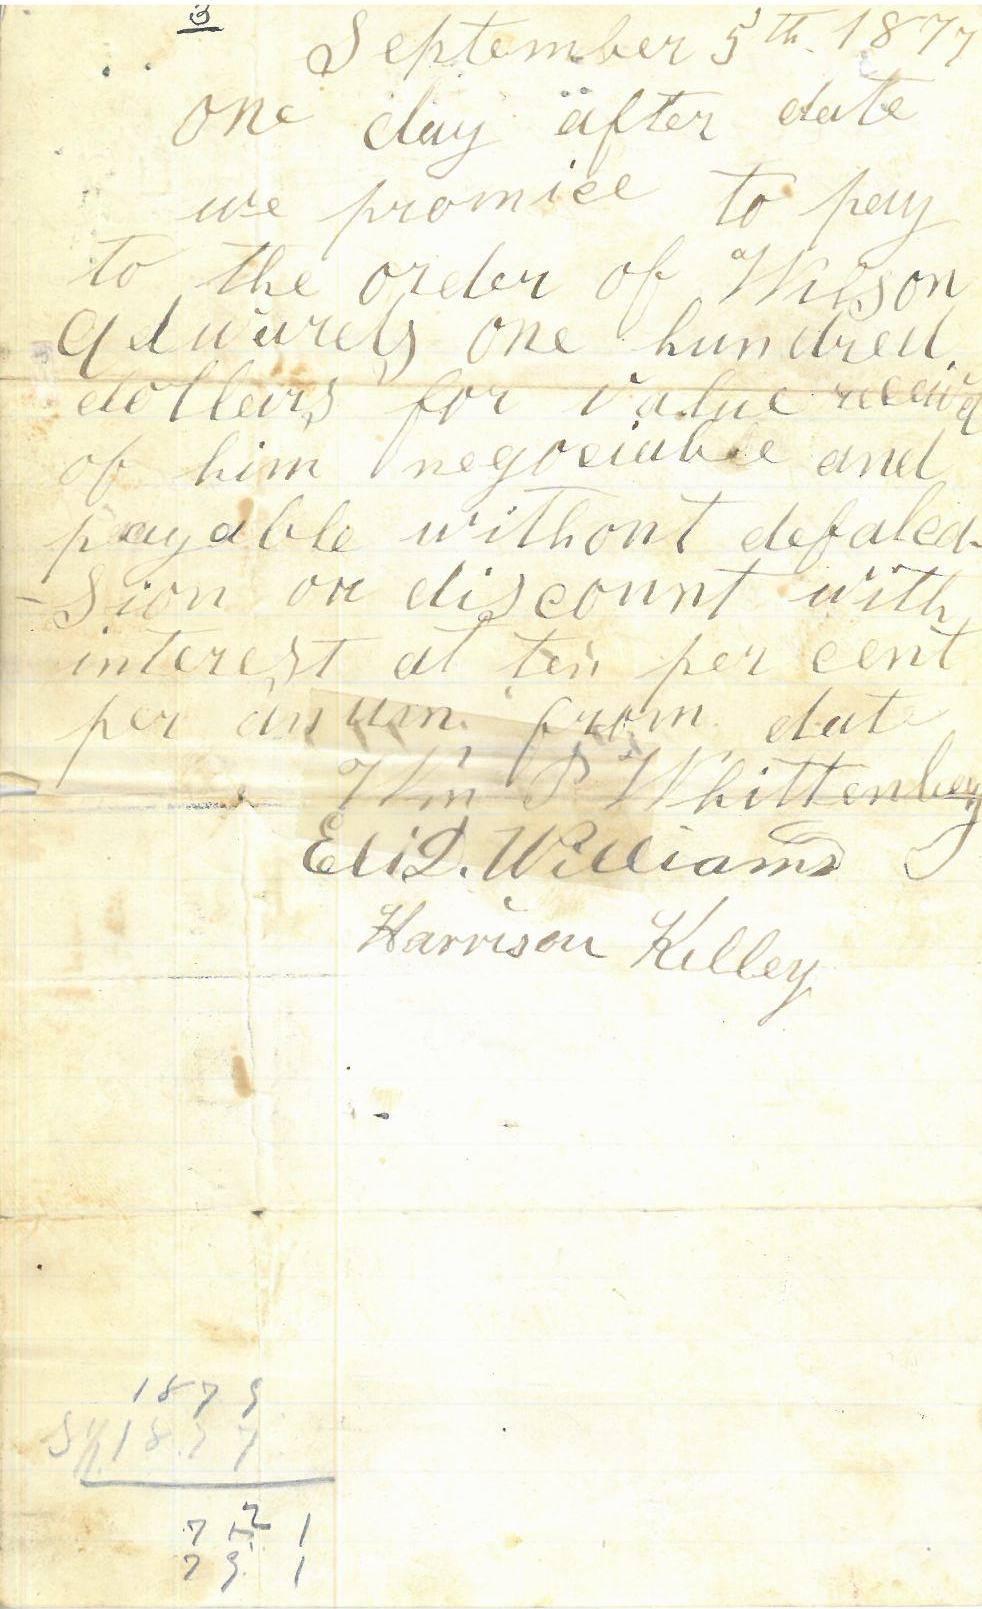 3
September 5th 1877
one day after date
we promice to pay
to the order of Wilson
Edwards one hundred
dollars for value receivd
of him negociable and
payable without defalca-
-sion or discount with
interest at ten per cent
per annum from date
Wm P Whittenberg
Eli D. Williams
Harrison Kelley
1879
1877
7 2 1
7 9 1